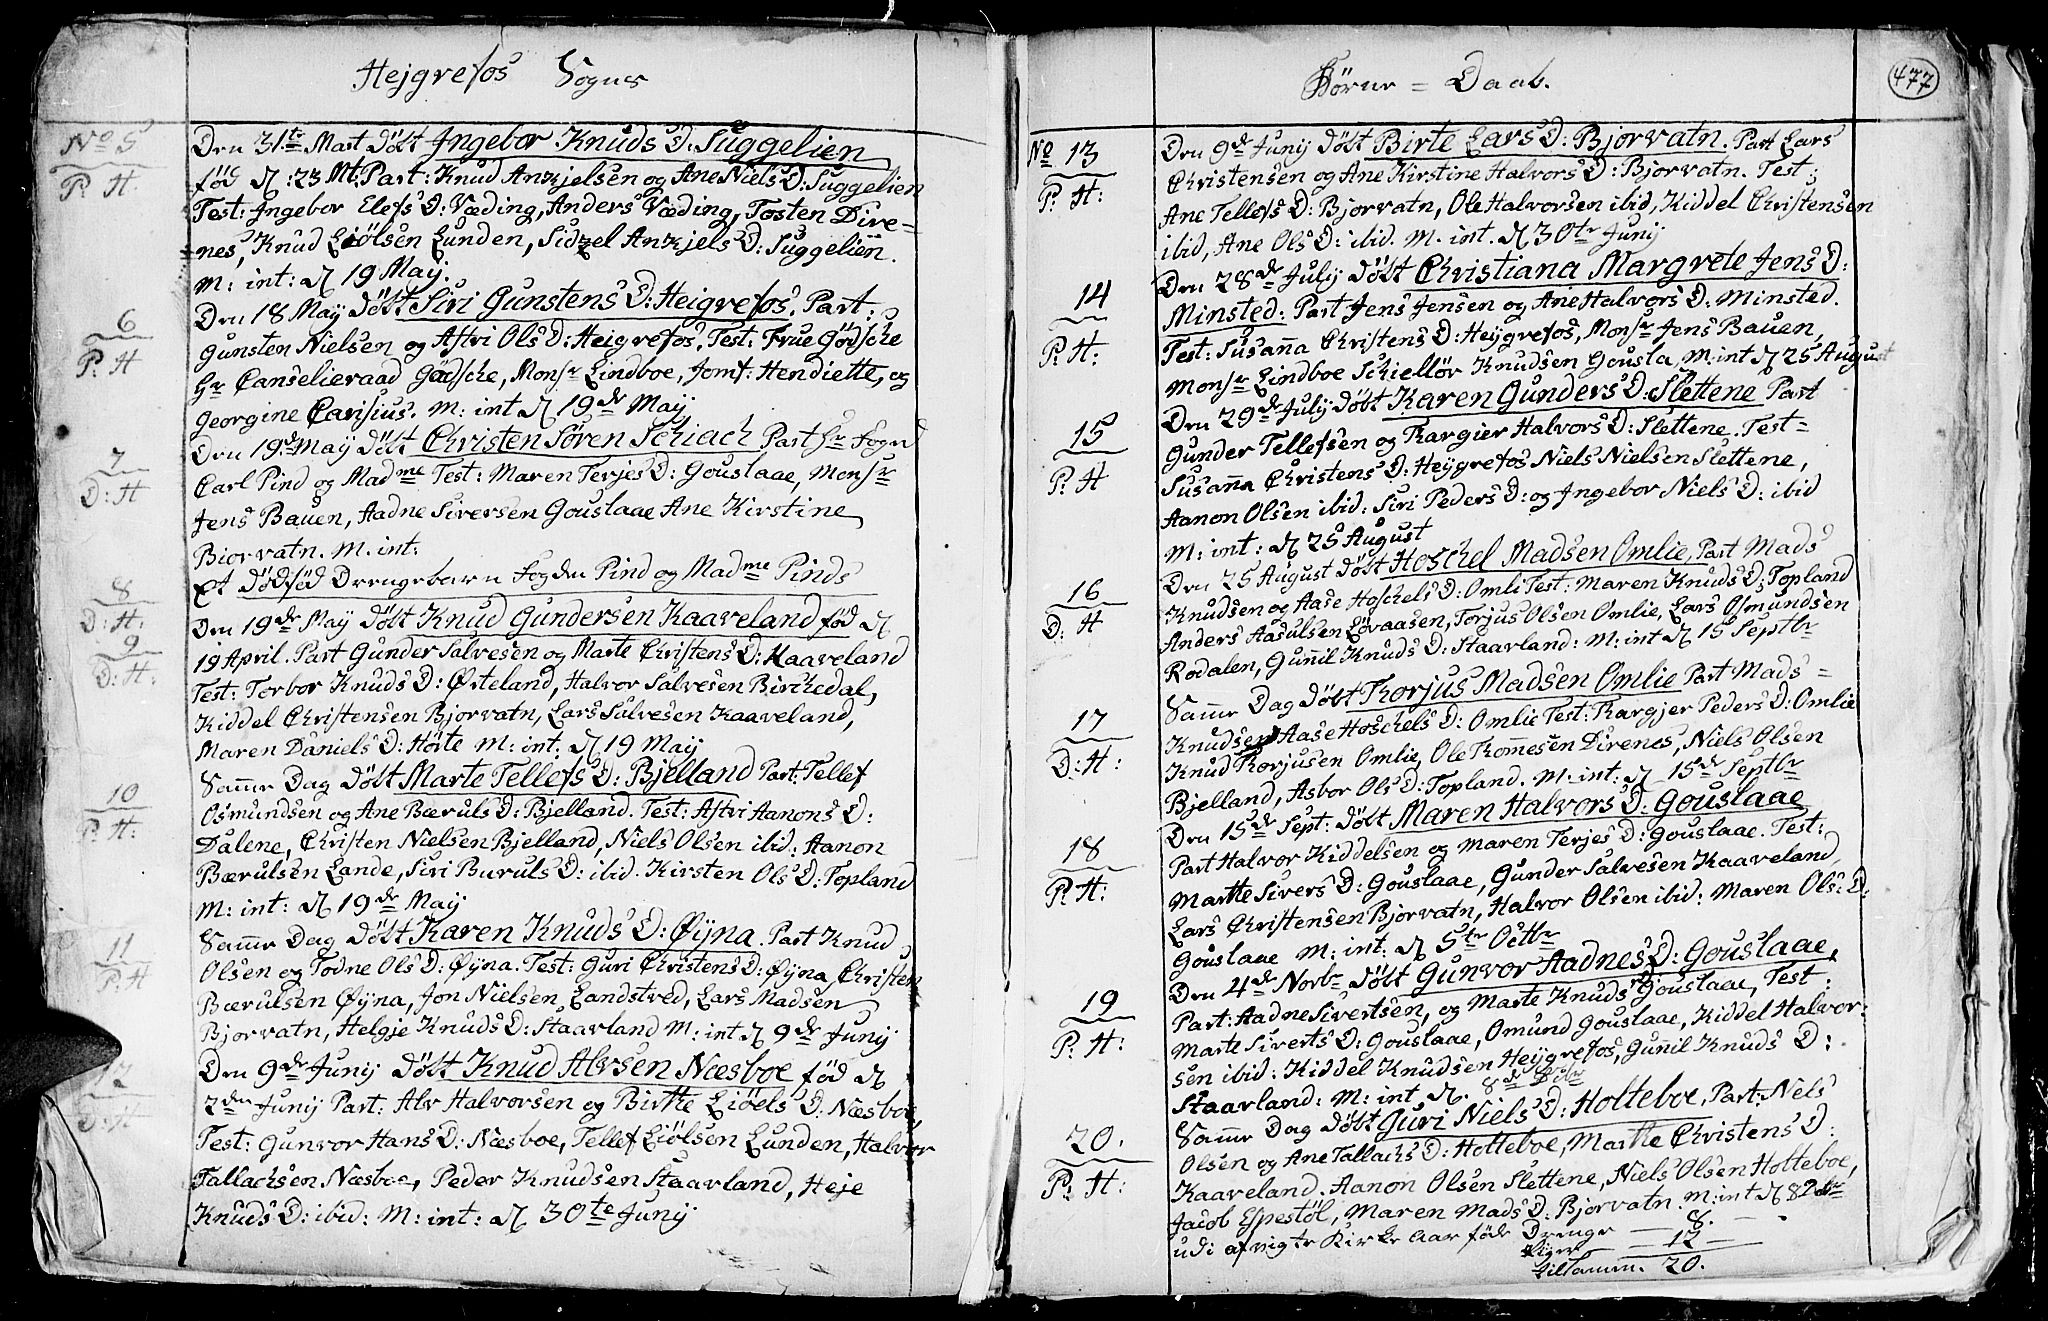 Hejgrefos Sogns
No 5
P: H.
Den 31te Mart Döbt Ingebor Knuds D: Suggelien
fød d: 23 Mt: Part: Knud Ankjelsen og Ane Niels D: Suggelien
Test: Ingebor Elefs D: Væding, Anders Væding, Tosten Dire-
nes, Knud Liölsen Lunden, Sidzel Ankjels D: Suggelien.
M: int: d 19 May.
6
P: H
Den 18 May Döbt Siri Gunstens D: Heigrefos. Part:
Gunsten Nielsen og Astri Ols D: Heigrefos. Test: Frue Gödsche
Hr Canselieraad Gödsche, Monsr Lindboe, Jomf: Hendiette, og
Georgine Carisius. M: int d 19de May
7
D: H
Den 19de May döbt Christen Sören Schiach Part Hr Fogd
Carl Pind og Madme Test: Maren Terjes D: Gouslaae, Monsr
Jens Bauen, Aadne Siversen Gouslaae Ane Kirstine
Biorvatn. M. int:
8
D: H:
Et Dödföd Drengebarn Fogden Pind og Madme Pinds
9
D: H:
Den 19de May Döbt Knud Gundersen Kaaveland fød d
19 April. Part Gunder Salvesen og Marte Christens D: Kaaveland
Test: Torbor Knuds D: Østeland, Halvor Salvesen Birchedal,
Kiddel Christensen Bjorvatn, Lars Salvesen Kaaveland,
Maren Daniels D: Hörte M: int. d 19 May
10
P: H:
Samme Dag Döbt Marte Tellefs D: Bjelland Part: Tellef
Osmundsen og Ane Bæruls D: Bjelland. Test: Astri Aanons D:
Dalene, Christen Nielsen Bjelland, Niels Olsen ibid: Aanon
Bærulsen Lande, Siri Buruls D: ibid. Kirsten Ols D: Topland
M: int: d 19de May
11
P: H
Samme Dag Döbt Karen Knuds D: Øyna. Part Knud
Olsen og Todne Ols D: Øyna. Test: Guri Christens D: Øyna, Christen
Bærulsen Øyna, Jon Nielsen, Landstved, Lars Madsen
Bjorvatn, Helgje Knuds D: Staarland M: int d 9de Junij
12
D: H
Den 9de Junij Döbt Knud Alvsen Næsboe fød d
2den Junij Part: Alv Halvorsen og Birtte Liöels D: Næsboe
Test: Gunvor Hans D: Næsboe, Tellef Liölsen Lunden, Halvor
Tallachsen Næsboe, Peder Knudsen Staarland, Heje
Knuds D: ibid: M: int: d 30te Junij
Börne = Daab.
477
No 13
P: H:
Den 9de Junij Döbt Birte Lars D: Bjorvatn. Part Lars
Christensen og Ane Kirstine Halvors D: Bjorvatn. Test:
Ane Tellefs D: Bjorvatn, Ole Halvorsen ibid, Kiddel Christensen
ibid, Ane Ols D: ibid. M. int. d 30te Junij
14
P: H:
Den 28de July Döbt Christiana Margrete Jens D:
Minsted: Part Jens Jensen og Ane Halvors D: Minsted.
Test: Susanna Christens D: Heygrefos, Monsr Jens Bauen,
Monsr Lindboe Schiellör Knudsen Gousla, M: int d 25 August
15
P: H
Den 29de July Döbt Karen Gunders D: Slettene Part
Gunder Tellefsen og Targier Halvors D: Slettene. Test=
Susanna Christens D: Heygrefos Niels Nielsen Slettene,
Aanon Olsen ibid: Siri Peders D: og Ingebor Niels D: ibid
M: int: d 25 August
16
D: H
Den 25 August Döbt Hoschel Madsen Omlie, Part Mads
Knudsen og Aase Hoschels D: Omli Test: Maren Knuds D: Topland
Anders Aasulsen Lövaasen, Torjus Olsen Omlie, Lars Osmundsen
Rodalen, Gunnil Knuds D: Staarland: M: int d 15 Septbr
17
D: H:
Samme Dag Döbt Torjus Madsen Omlie Part Mads =
Knudsen Aase Hoschels D: Omlie Test: Targjer Peders D: Omlie
Knud Torjusen Omlie, Ole Tommesen Direnes, Niels Olsen
Bjelland, Asbor Ols D: Topland. M: int: d 15de Septbr
18
P: H:
Den 15de Sept: Döbt Maren Halvors D: Gouslaae
Part Halvor Kiddelsen og Maren Terjes D: Gouslaae. Test:
Martte Sivers D: Gouslaae, Gunder Salvesen Kaaveland,
Lars Christensen Bjorvatn, Halvor Olsen ibid: Maren Ols: D:
Gouslaae M: int: d 5te Octbr
19
P: H:
Den 4de Norbr Döbt Gunvor Aadnes D: Gouslaae,
Part: Aadne Sivertsen, og Marte Knuds D Gouslaae, Test:
Marte Siverts D: Gouslaae, Omund Gouslaae, Kiddel Halvor:
sen ibid: Kiddel Knudsen Heygrefos, Gunil Knuds D:
Staarland: M: int d. 8de Dbr
20.
P: H:
Samme Dag Döbt Guri Niels D: Holteboe, Part: Niels
Olsen og Ane Tallachs D: Holteboe, Martte Christens D:
Kaaveland. Aanon Olsen Slettene, Niels Olsen Holteboe,
Jacob Espestöl, Maren Mads D: Bjorvatn. M: int d 8 Dbr
udi afvigte Kirke Aarföde Drenge — 8.
Piger — 12
tilsamm. 20.